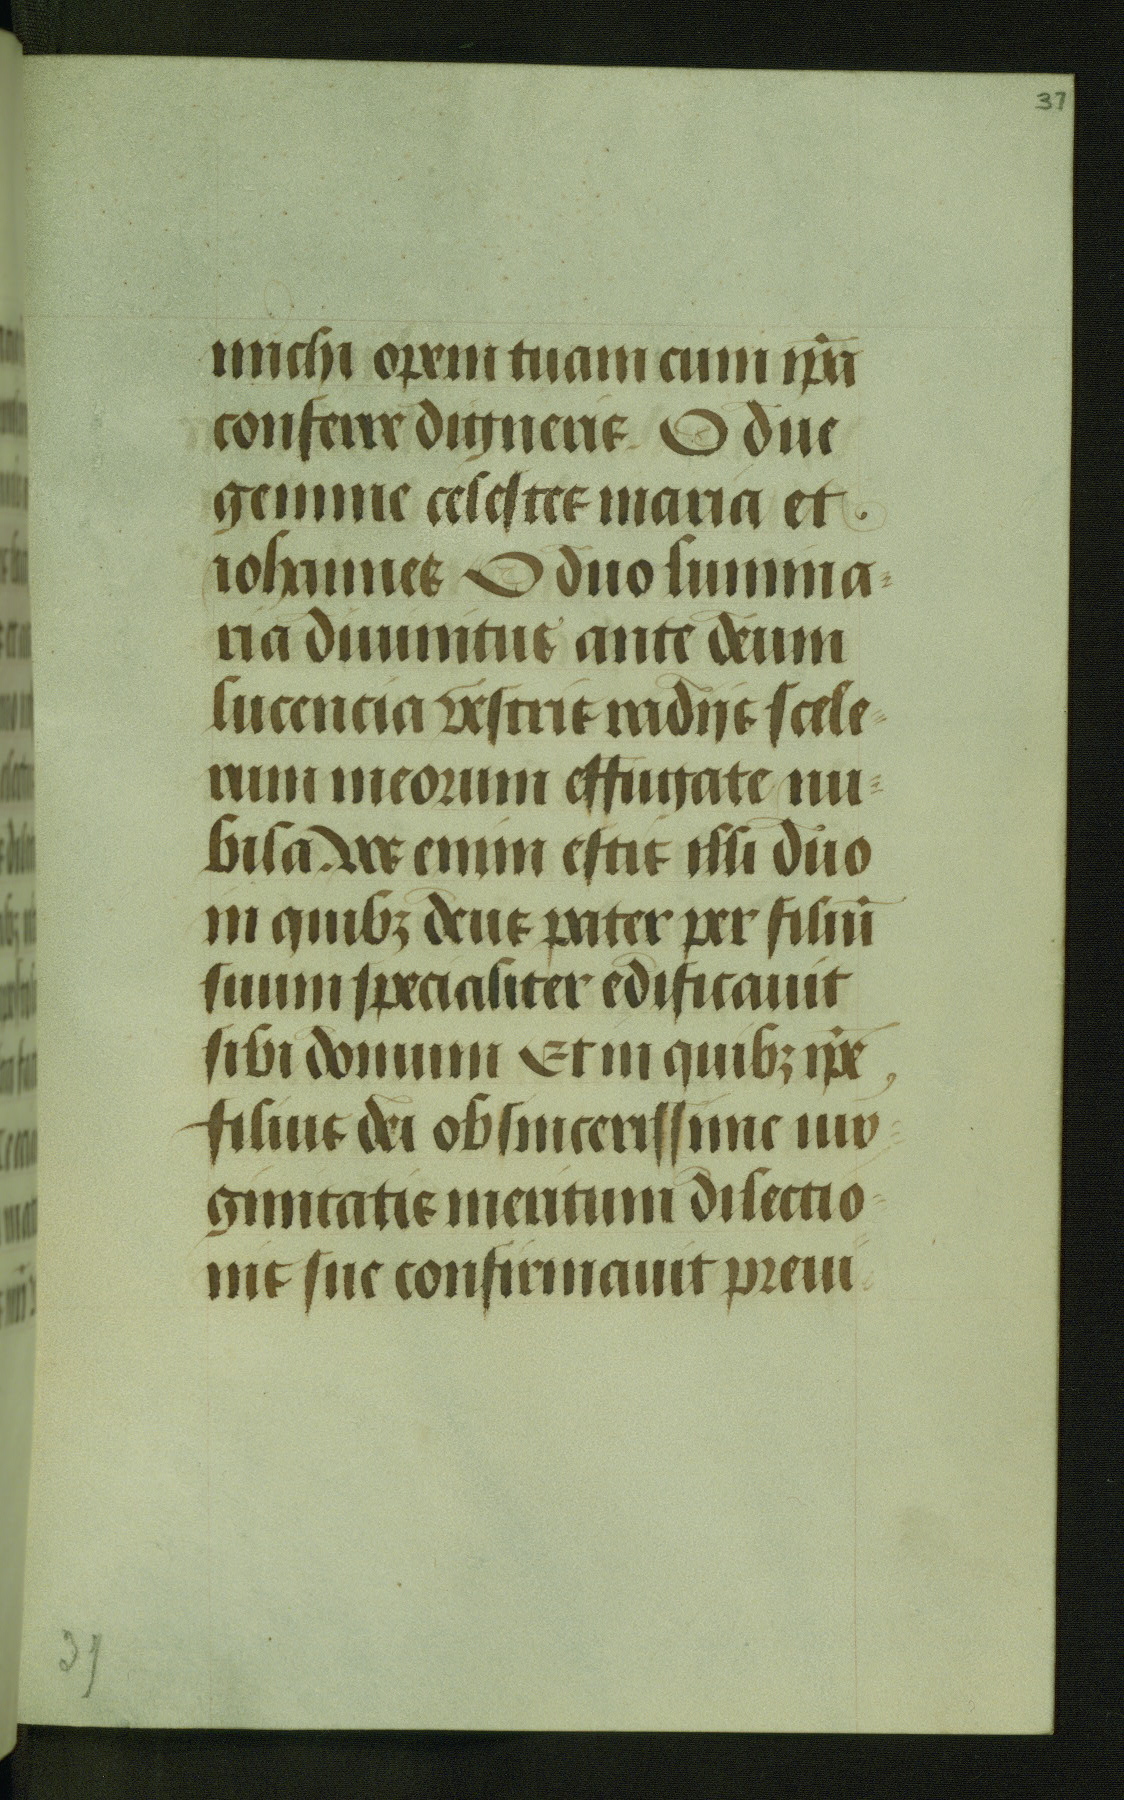 37
michi opem tuam cum ip̄a
conferre digneris. O due
gemme celestes maria et
iohannes O duo lumina-
ria diuinitus ante deum
lucencia vestris radijs scele-
rum meorum effugate nu-
bila. Vos enim estis illi duo
in quibꝫ deus pater per filiū
suum specialiter edificauit
sibi domum Et in quibꝫ ip̄e
filius dei ob sincerissime uir-
ginitatis meritum dilectio-
nis sue confirmauit preui
37